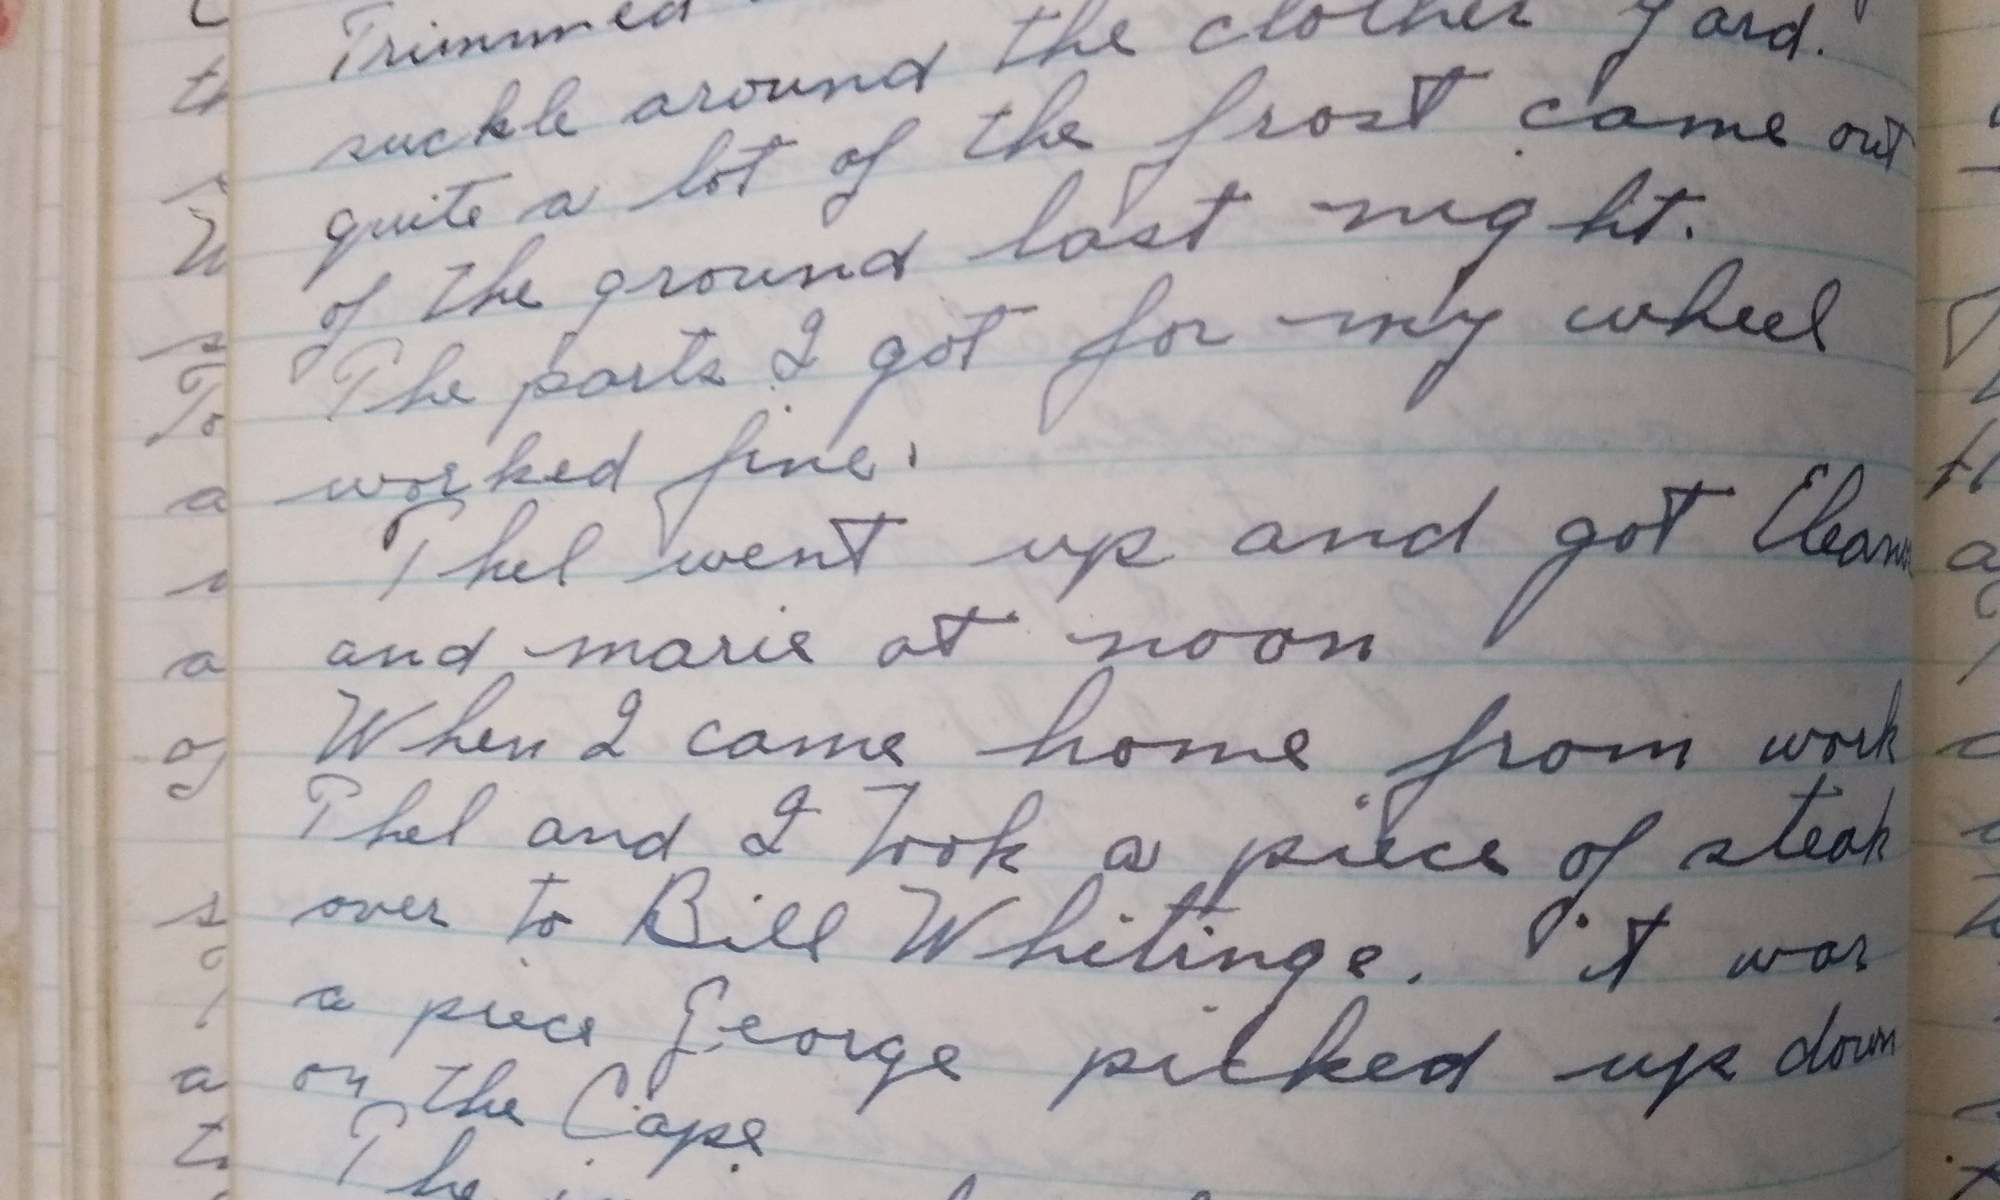 Trimmed
suckle around the clothes yard.
quite a lot of the frost came out
of the ground last night.
The parts I got for my wheel
worked fine.
Thel went up and got
and marie at noon
When I came home from work
Thel and I took a piece of steak
over to Bill Whitings. it was
a piece George picked up down
on the Cape
The